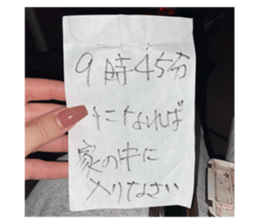 9時45分
になれば
家の中に
入りなさい